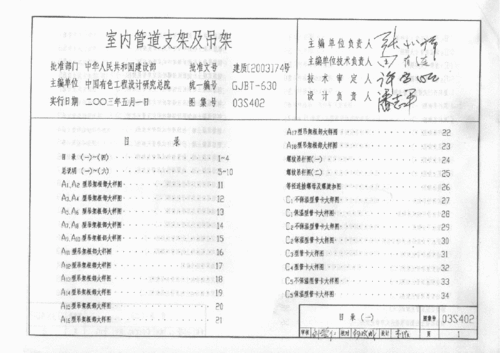 室内管道支架及吊架
批准部门 中华人民共和国建设部 批准文号 建质[2003]74号
主编单位 中国有色工程设计研究总院 统一编号 GJBT-630
实行日期 二〇〇三年五月一日 图集号 03S402
主编单位负责人
主编单位技术负责人
技术审定人
设计负责人
目录
目录(一)~(四) 1-4
总说明(一)~(六) 5-10
A1,A2型吊架根部大样图 11
A3,A4型吊架根部大样图 12
A5,A6型吊架根部大样图 13
A7,A8型吊架根部大样图 14
型吊架根部大样图 15
型吊架根部大样图 16
型吊架根部大样图 17
型吊架根部大样图 18
型吊架根部大样图 19
型吊架根部大样图 20
型吊架根部大样图 21
A17型吊架根部大样图 22
A18型吊架根部大样图 23
螺纹吊杆图(一) 24
螺纹吊杆图(二) 25
26
C1不保温型管卡大样图 27
C1保温型管卡大样图 28
C2不保温型管卡大样图 29
C2保温型管卡大样图 30
C3型管卡大样图 31
C4型管卡大样图 32
C5不保温型管卡大样图 33
C5保温型管卡大样图 34
目录(一) 图集号 03S402
审核 校对 设计 页 1